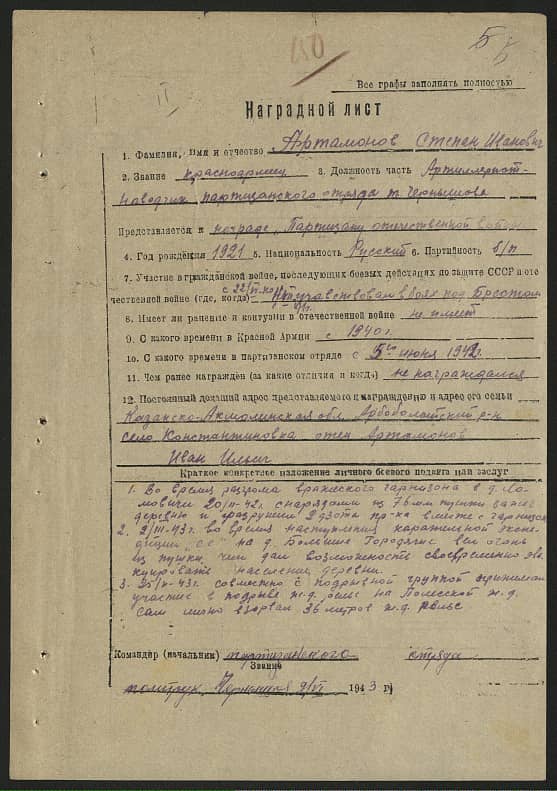 150
5
Все графы заполнять полностью
II
Наградной лист
1. Фамилия, имя и отчество Артамонов Степан Иванович
2. Звание красноармеец 3. Должность часть Артиллерист-
наводчик партизанского отряда т. Чернышова
Представляется к награде „Партизану отечественной войны
4. Год рождения 1921 5. Национальность Русский 6. Партийность б/п
7. Участие в гражданской войне, последующих боевых действиях по защите СССР и оте
чественной войне (где, когда) с 22/VI участвовал в боях под Брестом
8. Имеет ли ранение и контузии в отечественной войне не имеет
9. С какого времени в Красной Армии с 1940 г.
10. С какого времени в партизанском отряде с 5го июня 1942 г.
11. Чем ранее награждён (за какие отличия и когда) не награждался
12. Постоянный домашний адрес представляемого к награждению и адрес его семьи
Казахско-Акмолинская обл. р-н
село Константиновка отец Артамонов
Иван Ильич
Краткое конкретное изложение личного боевого подвига или заслуг
1. Во время разгрома вражеского гарнизона в д. Ло-
мовичи 20/III-42г. снарядами из 76 мм пушки зажег
деревню и разрушил 2 дзота пр-ка вместе с гарнизон
2. 9/III-43г. во время наступления карательной экспе-
диции „СС" на д. Большие Городятичи вел огонь
из пушки, чем дал возможность своевременно эва-
куировать население деревни.
3. 25/V-43г. совместно с подрывной группой принимал
участие в подрыве ж.д. рельс на Полесской ж.д.
сам лично взорвал 36 метров ж.д. рельс.
Командир (начальник) партизанского отряда
Звание
политрук 9/VI 1943 г)